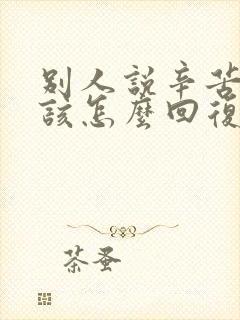 別人說辛苦
該怎麼回復
茶蚤